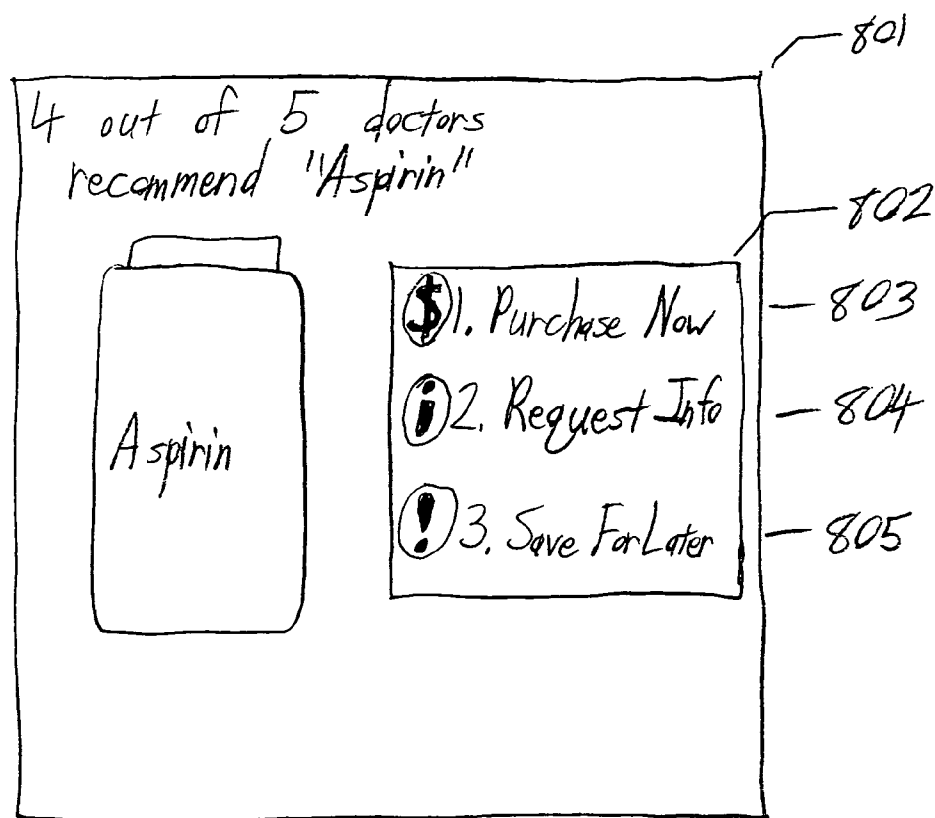 801
4 out of 5 doctors
recommend "Aspirin"
802
$ 1. Purchase Now
803
i 2. Request Info
804
Aspirin
! 3. Save For Later
805